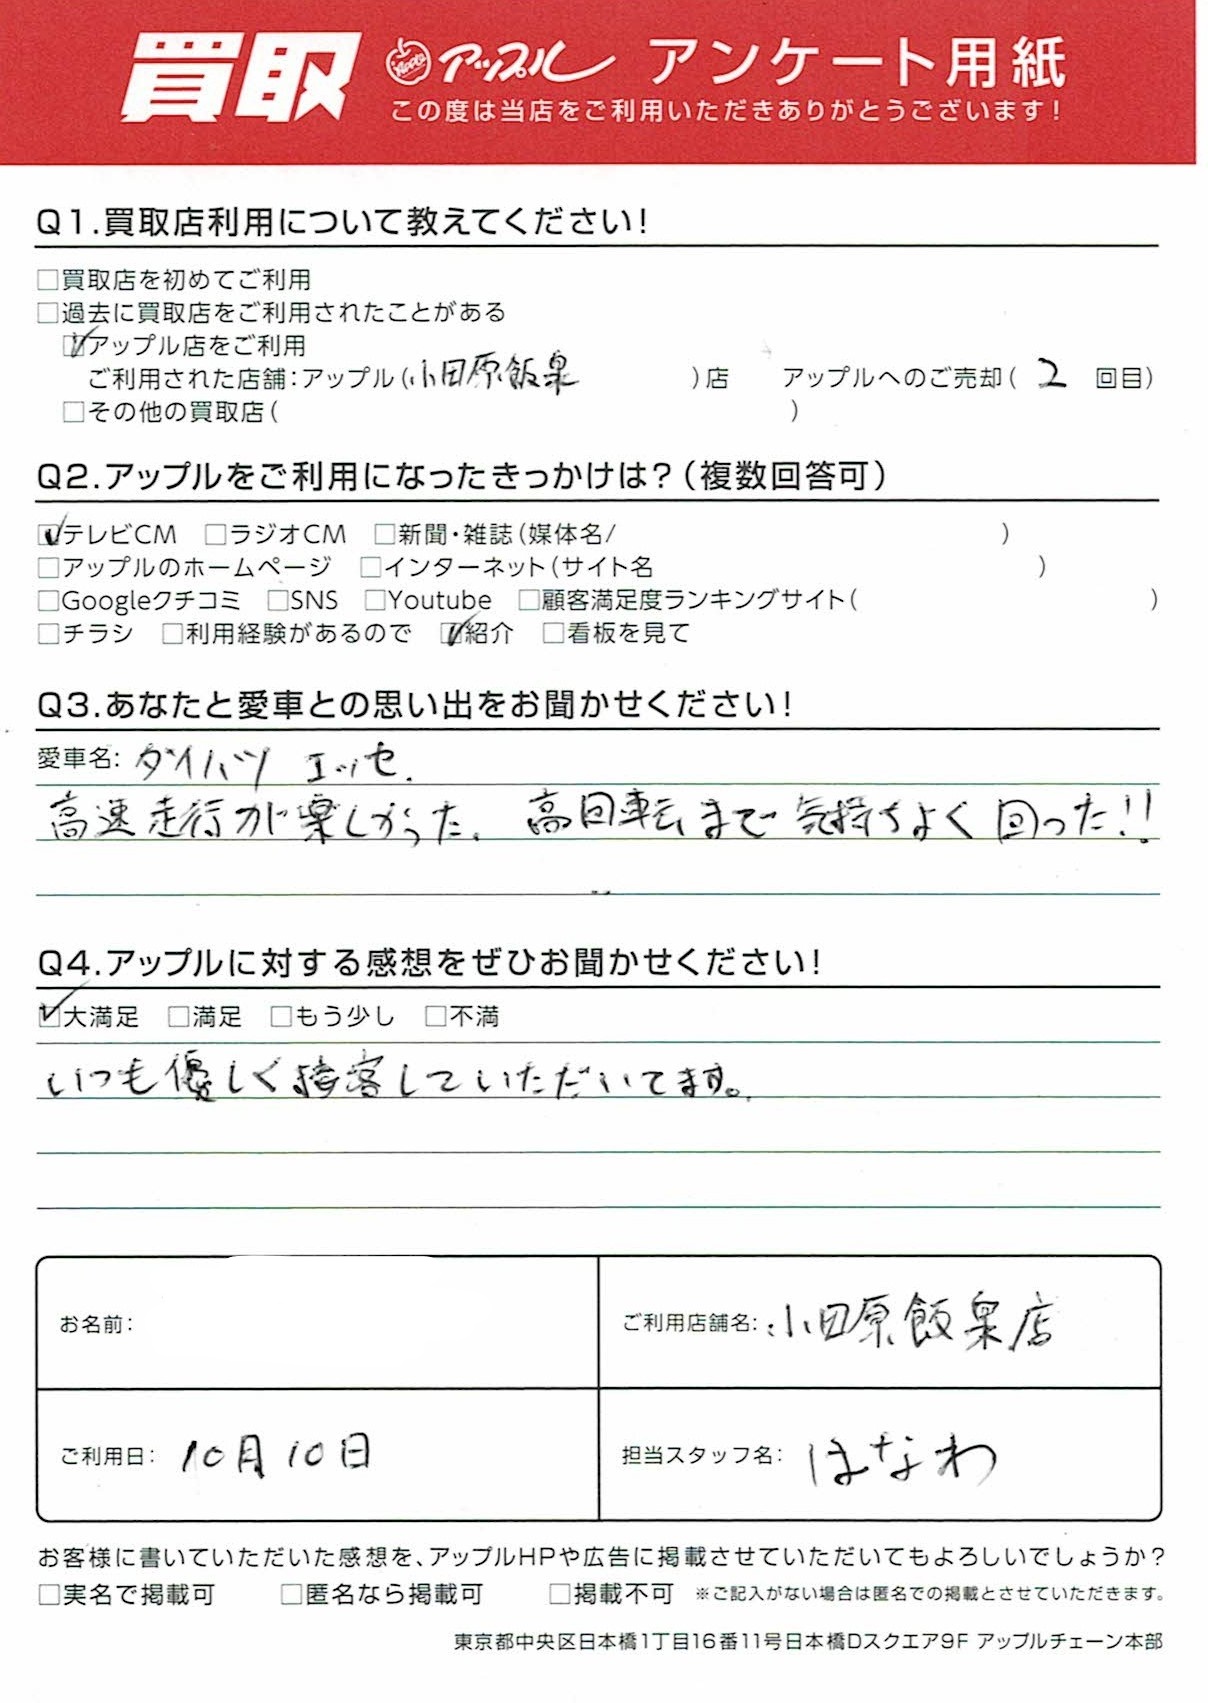 買取 Apple アップル アンケート用紙
この度は当店をご利用いただきありがとうございます!
Q1.買取店利用について教えてください!
□買取店を初めてご利用
□過去に買取店をご利用されたことがある
☑アップル店をご利用
ご利用された店舗:アップル(小田原飯泉)店 アップルへのご売却(2回目)
□その他の買取店( )
Q2.アップルをご利用になったきっかけは?(複数回答可)
☑テレビCM □ラジオCM □新聞・雑誌(媒体名/ )
□アップルのホームページ □インターネット(サイト名 )
□Googleクチコミ □SNS □Youtube □顧客満足度ランキングサイト( )
□チラシ □利用経験があるので ☑紹介 □看板を見て
Q3.あなたと愛車との思い出をお聞かせください!
愛車名:ダイハツ エッセ.
高速走行が楽しかった。高回転まで気持ちよく回った!!
Q4.アップルに対する感想をぜひお聞かせください!
☑大満足 □満足 □もう少し □不満
いつも優しく接客していただいてます。
お名前:
ご利用店舗名:小田原飯泉店
ご利用日:10月10日
担当スタッフ名:はなわ
お客様に書いていただいた感想を、アップルHPや広告に掲載させていただいてもよろしいでしょうか?
□実名で掲載可 □匿名なら掲載可 □掲載不可 ※ご記入がない場合は匿名での掲載とさせていただきます。
東京都中央区日本橋1丁目16番11号日本橋Dスクエア9F アップルチェーン本部